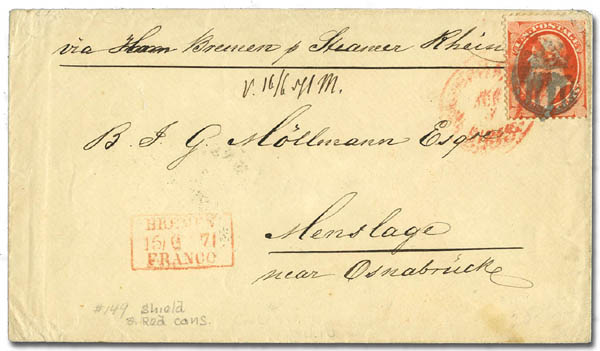 via H̶a̶m̶ Bremen p Steamer Rhein
U.S. POSTAGE
v. 16/6 71 M.
B J G Möllmann Esqre
BREMEN
15 6 71
FRANCO
Menslage
near Osnabrücke
#149 shield
& Red cans.